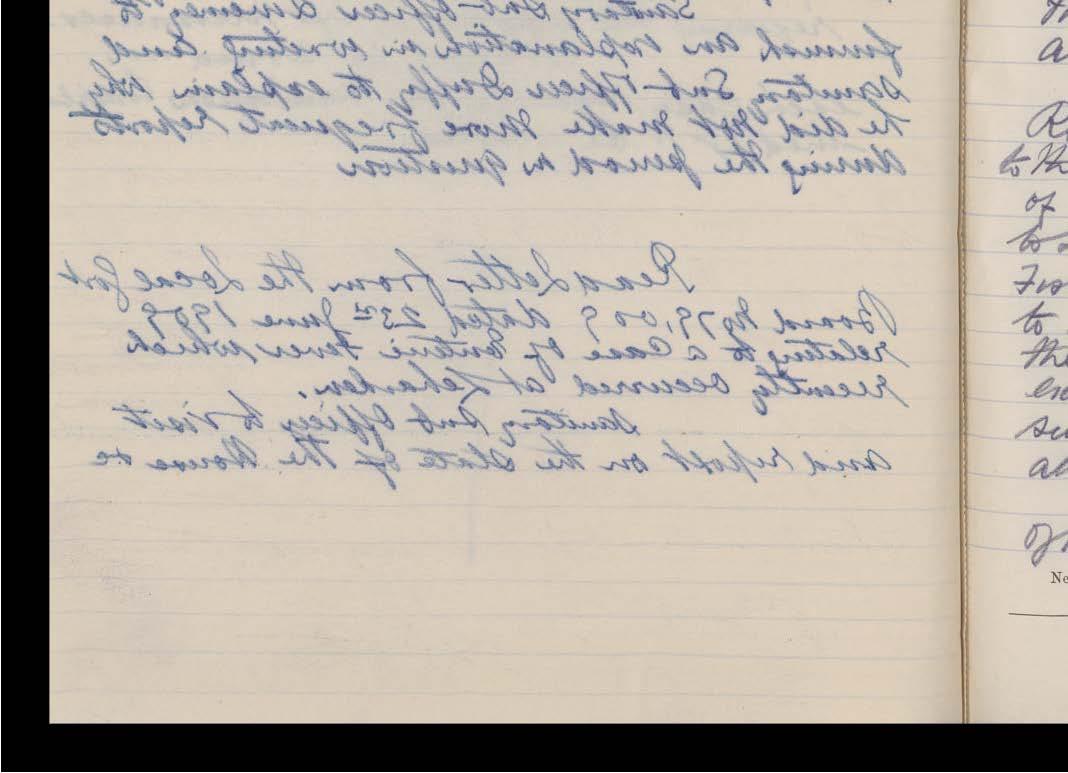 Sanitary Sub-Officer to
furnish an explanation in writing and
Sanitary Sub-Officer Duffy to explain why
he did not make more frequent reports
during the period in question
Read Letter from the Local Govt
Board No 79,009 dated 23rd June 1909
relating to a case of Enteric Fever which
recently occurred at
Sanitary Sub Officer to visit
and report on the state of the House &c
a
R
to th
of
to
to
the
en
su
al
of
Ne